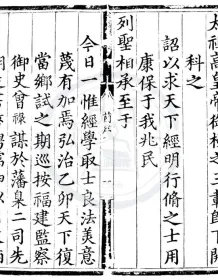 太祖高皇帝
科之
詔以求天下經明行脩之士用
康保于我兆民
列聖相承至于
今日一惟經學取士良法美意
蔑有加焉弘治乙卯天下復
當鄉試之期巡按福建監察
御史曾祿謀于藩臬二司先